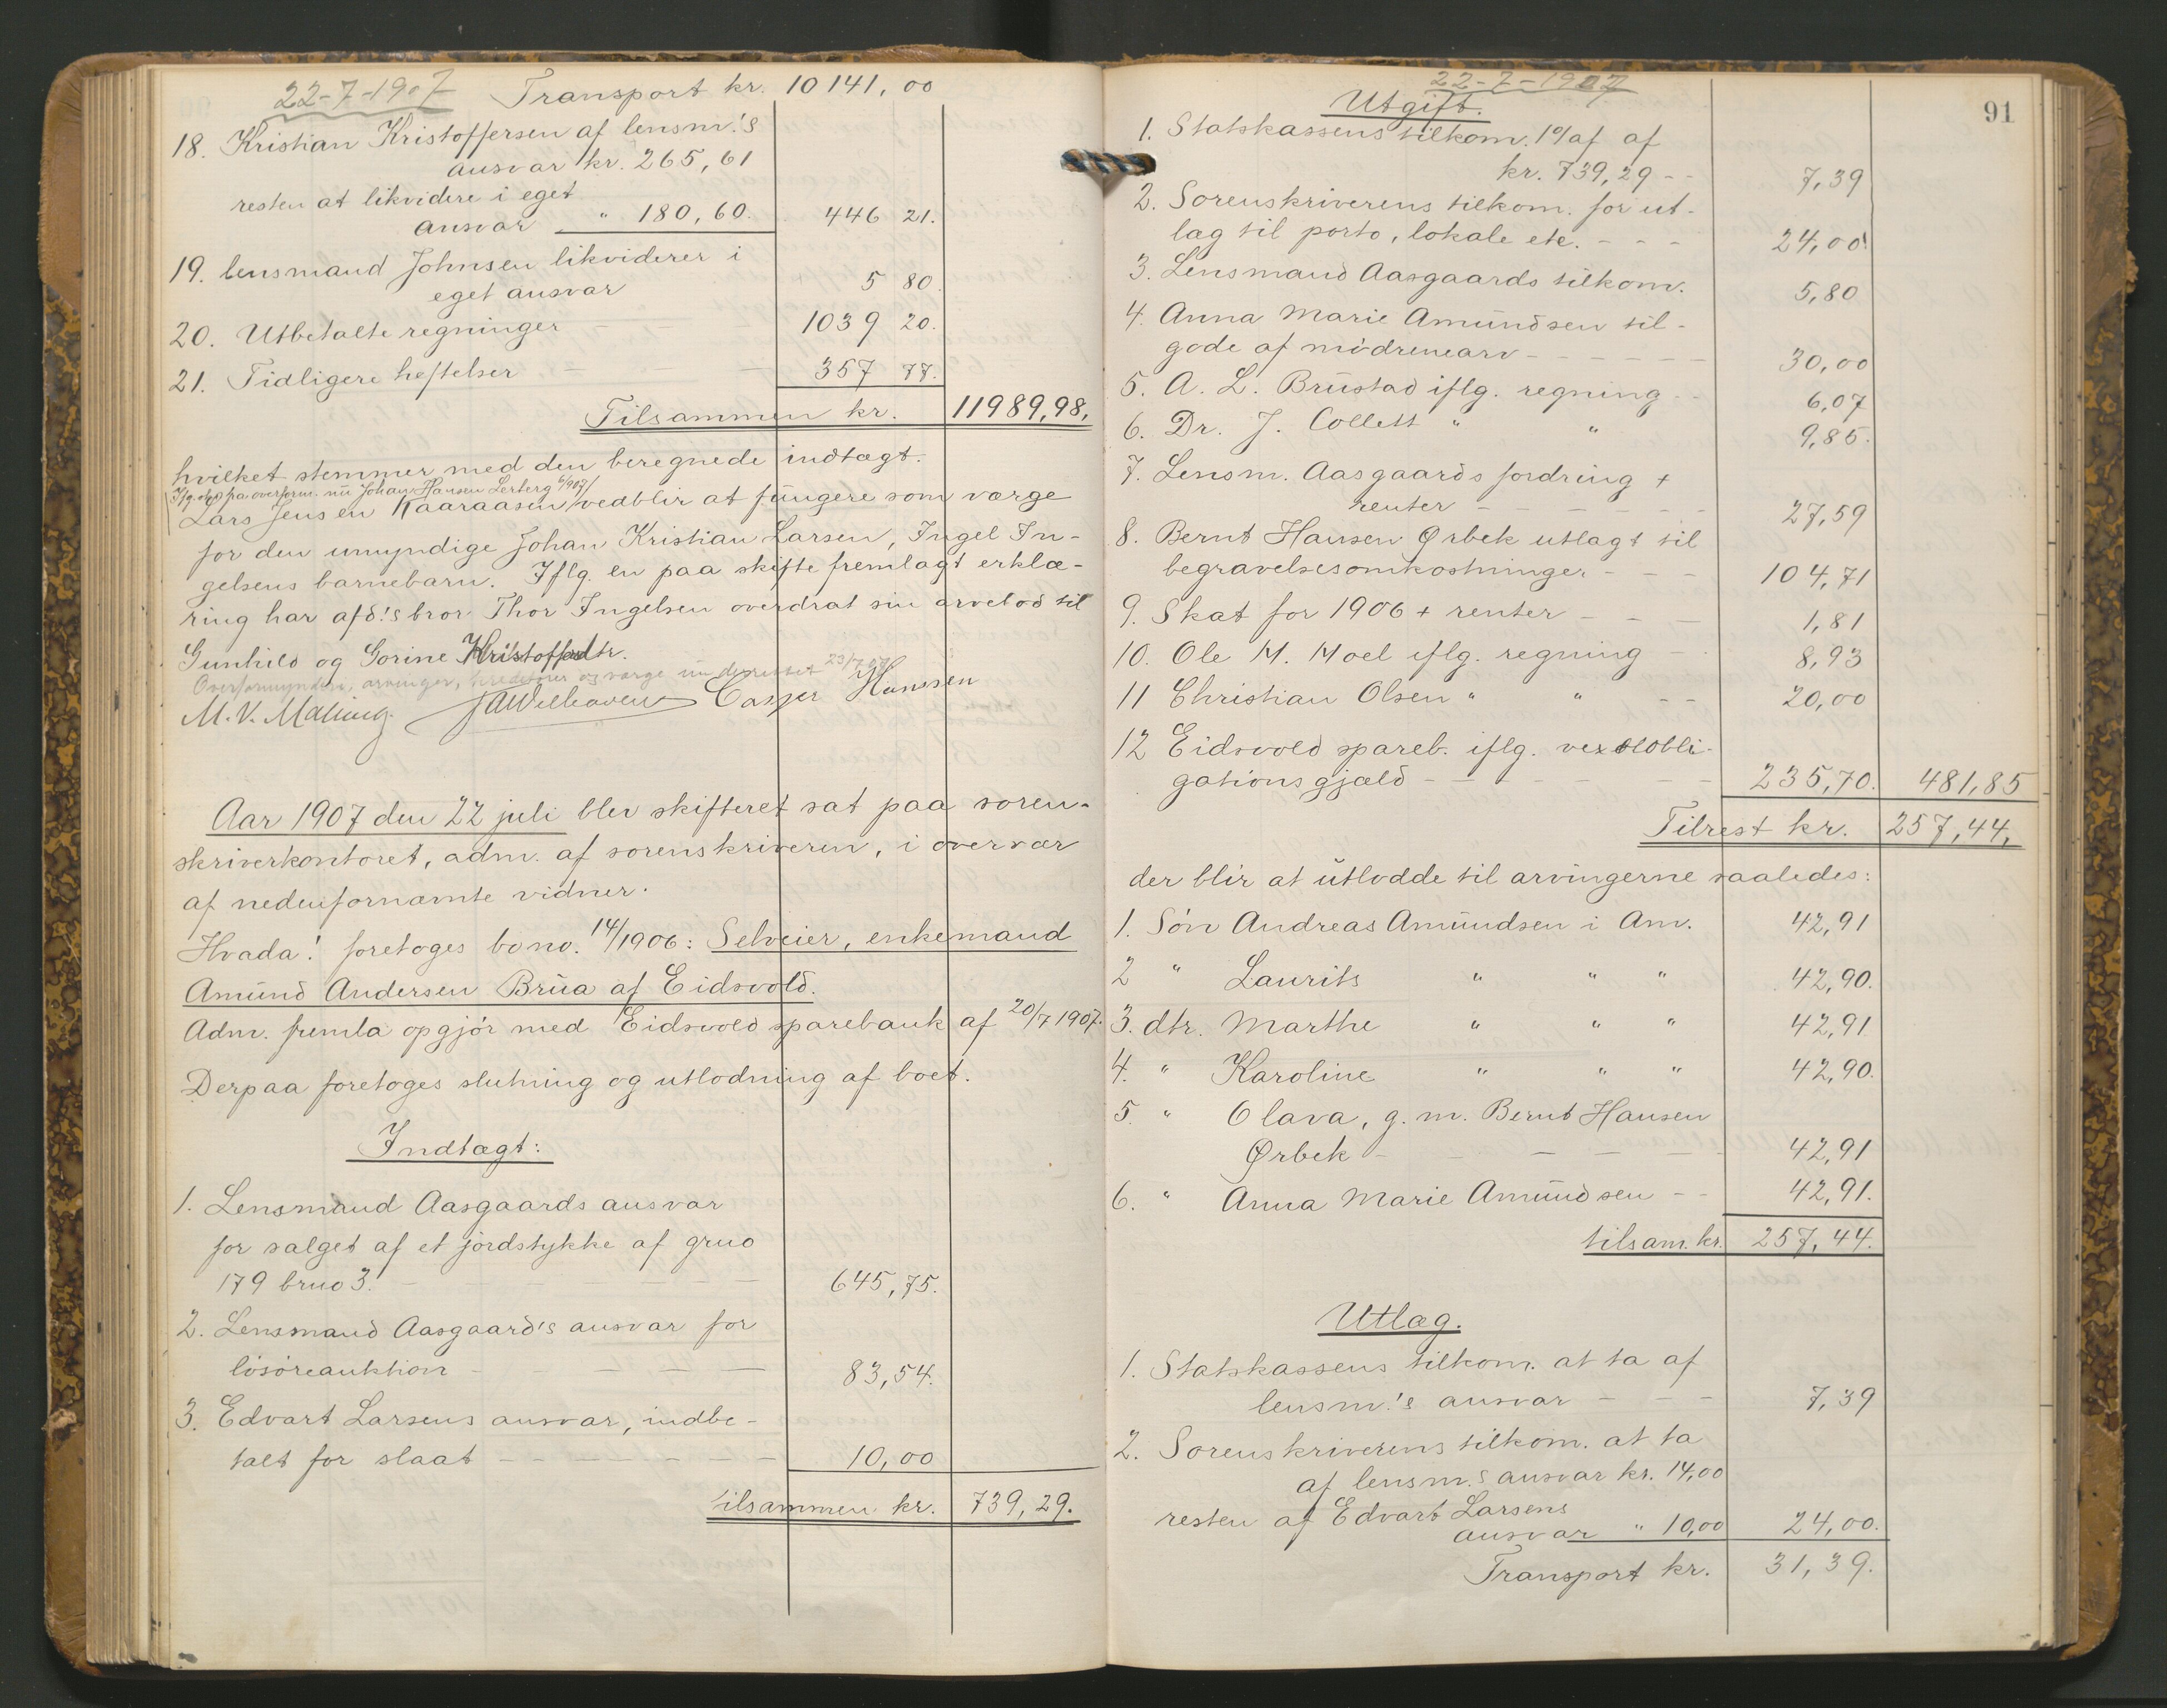 22-7-1907 Transport kr. 10141,00
18. Kristian Kristoffersen af lensm.'s
ansvar kr. 265,61
resten at likvidere i eget
ansvar " 180,60. 446 21.
19. lensmand Johnsen likviderer i
eget ansvar 5 80.
20. Utbetalte regninger — — 1039 20.
21. Tidligere heftelser — — — 357 77.
Tilsammen kr. 11989,98.
hvilket stemmer med den beregnede indtægt.
Johan Hansen Lerberg
Lars Jensen Kaaraasen vedblir at fungere som værge
for den umyndige Johan Kristian Larsen, Ingel In-
gelsens barnebarn. Iflg. en paa skifte fremlagt erklæ-
ring har afd.'s bror Thor Ingelsen overdrat sin arvelod til
Gunhild og Gorine Kristoffersdtr.
Overformynderi, arvinger, kreditorer og værge underrettet 23/7 07
M. V. Malling. JAWelhaven Casper Hanssen
Aar 1907 den 22 juli blev skifteret sat paa soren-
skriverkontoret, adm. af sorenskriveren, i overvær
af nedenfornævnte vidner.
Hvada! foretoges bo no. 14/1906: Selveier, enkemand
Amund Andersen Brua af Eidsvold.
Adm. fremla opgjör med Eidsvold sparebank af 20/7 1907.
Derpaa foretoges slutning og utlodning af boet.
Indtægt:
1. Lensmand Aasgaards ansvar
for salget af et jordstykke af gr no
179 br no 3. — — — — — 645,75.
2. Lensmand Aasgaard's ansvar for
lösöreauktion — — — — — 83,54.
3. Edvart Larsens ansvar, indbe-
talt for slaat — — — — — — 10,00
tilsammen kr. 739,29.
22-7-1907
91
Utgift.
1. Statskassens tilkom. 1% af af
kr. 739,29 - - 7,39
2. Sorenskriverens tilkom. for ut-
læg til porto, lokale etc. - - - 24,00
3. Lensmand Aasgaards tilkom. 5,80
4. Anna Marie Amundsen til-
gode af mödrenearv - - - - - - 30,00
5. A. L. Brustad iflg. regning - - 6,07
6. Dr. J. Collett " " 9,85.
7. Lensm. Aasgaards fordring +
renter - - - - - - 27,59
8. Bernt Hansen Ørbek utlagt til
begravelsesomkostninger - - - 104,71
9. Skat for 1906 + renter - - - 1,81
10. Ole M. Moel iflg. regning - - 8,93
11 Christian Olsen " " - - 20,00
12 Eidsvold spareb. iflg. vexelobli-
gationsgjæld - - - - - - 235,70. 481,85
Tilrest kr. 257,44.
der blir at utlodde til arvingerne saaledes:
1. Sön Andreas Amundsen i Am. 42,91
2 " Laurits " " " 42,90.
3. dtr. Marthe " " " 42,91
4. " Karoline " " " 42,90.
5. " Olava, g. m. Bernt Hansen
Ørbek - - - - - - 42,91
6. " Anna Marie Amundsen - - 42,91.
tilsam. kr. 257,44.
Utlæg.
1. Statskassens tilkom. at ta af
lensm.'s ansvar - - - 7,39
2. Sorenskriverens tilkom. at ta
af lensm.s ansvar kr. 14,00
resten af Edvart Larsens
ansvar " 10,00 24,00.
Transport kr. 31,39.